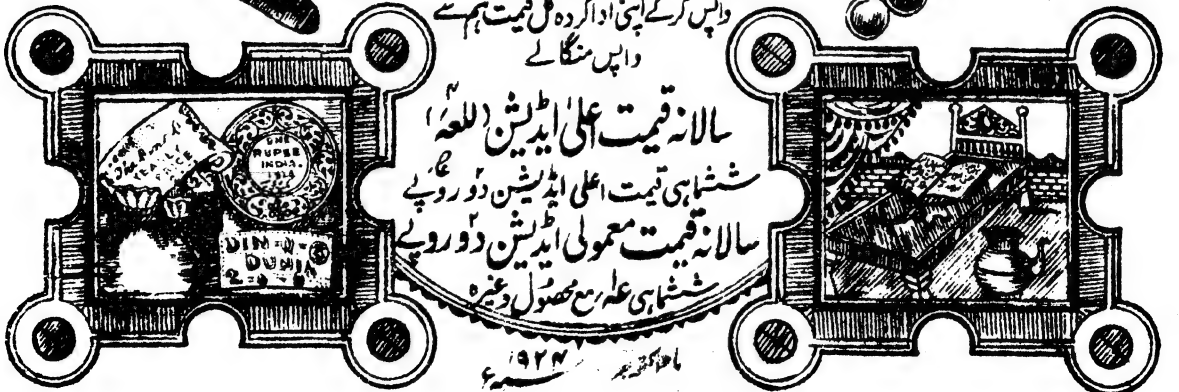 واپس کرکے اپنی ادا کردہ کل قیمت ہم سے
واپس منگالے
سالانہ قیمت اعلیٰ ایڈیشن (للعہ)
ششماہی قیمت اعلی ایڈیشن دو روپے
سالانہ قیمت معمولی ایڈیشن دو روپے
ششماہی عہ مع محصول وغیرہ
ماہ اکتوبر ۱۹۲۴ء
ONE
RUPEE
INDIA
DIN-O-
DUNIA
2-0-0